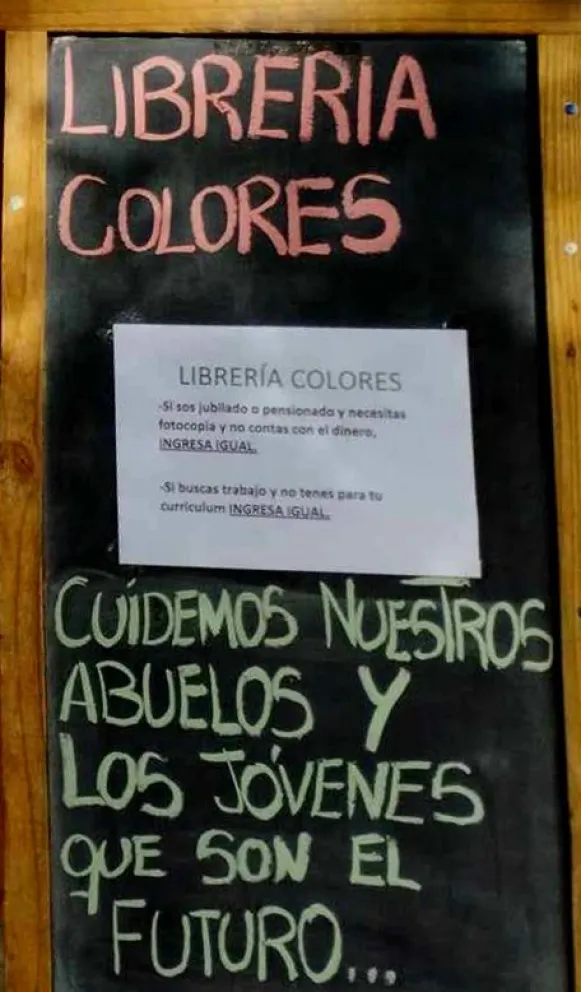 LIBRERIA
COLORES
LIBRERÍA COLORES
-Si sos jubilado o pensionado y necesitas
fotocopia y no contas con el dinero,
INGRESA IGUAL.
-Si buscas trabajo y no tenes para tu
curriculum INGRESA IGUAL.
CUÍDEMOS NUESTROS
ABUELOS Y
LOS JÓVENES
QUE SON EL
FUTURO...